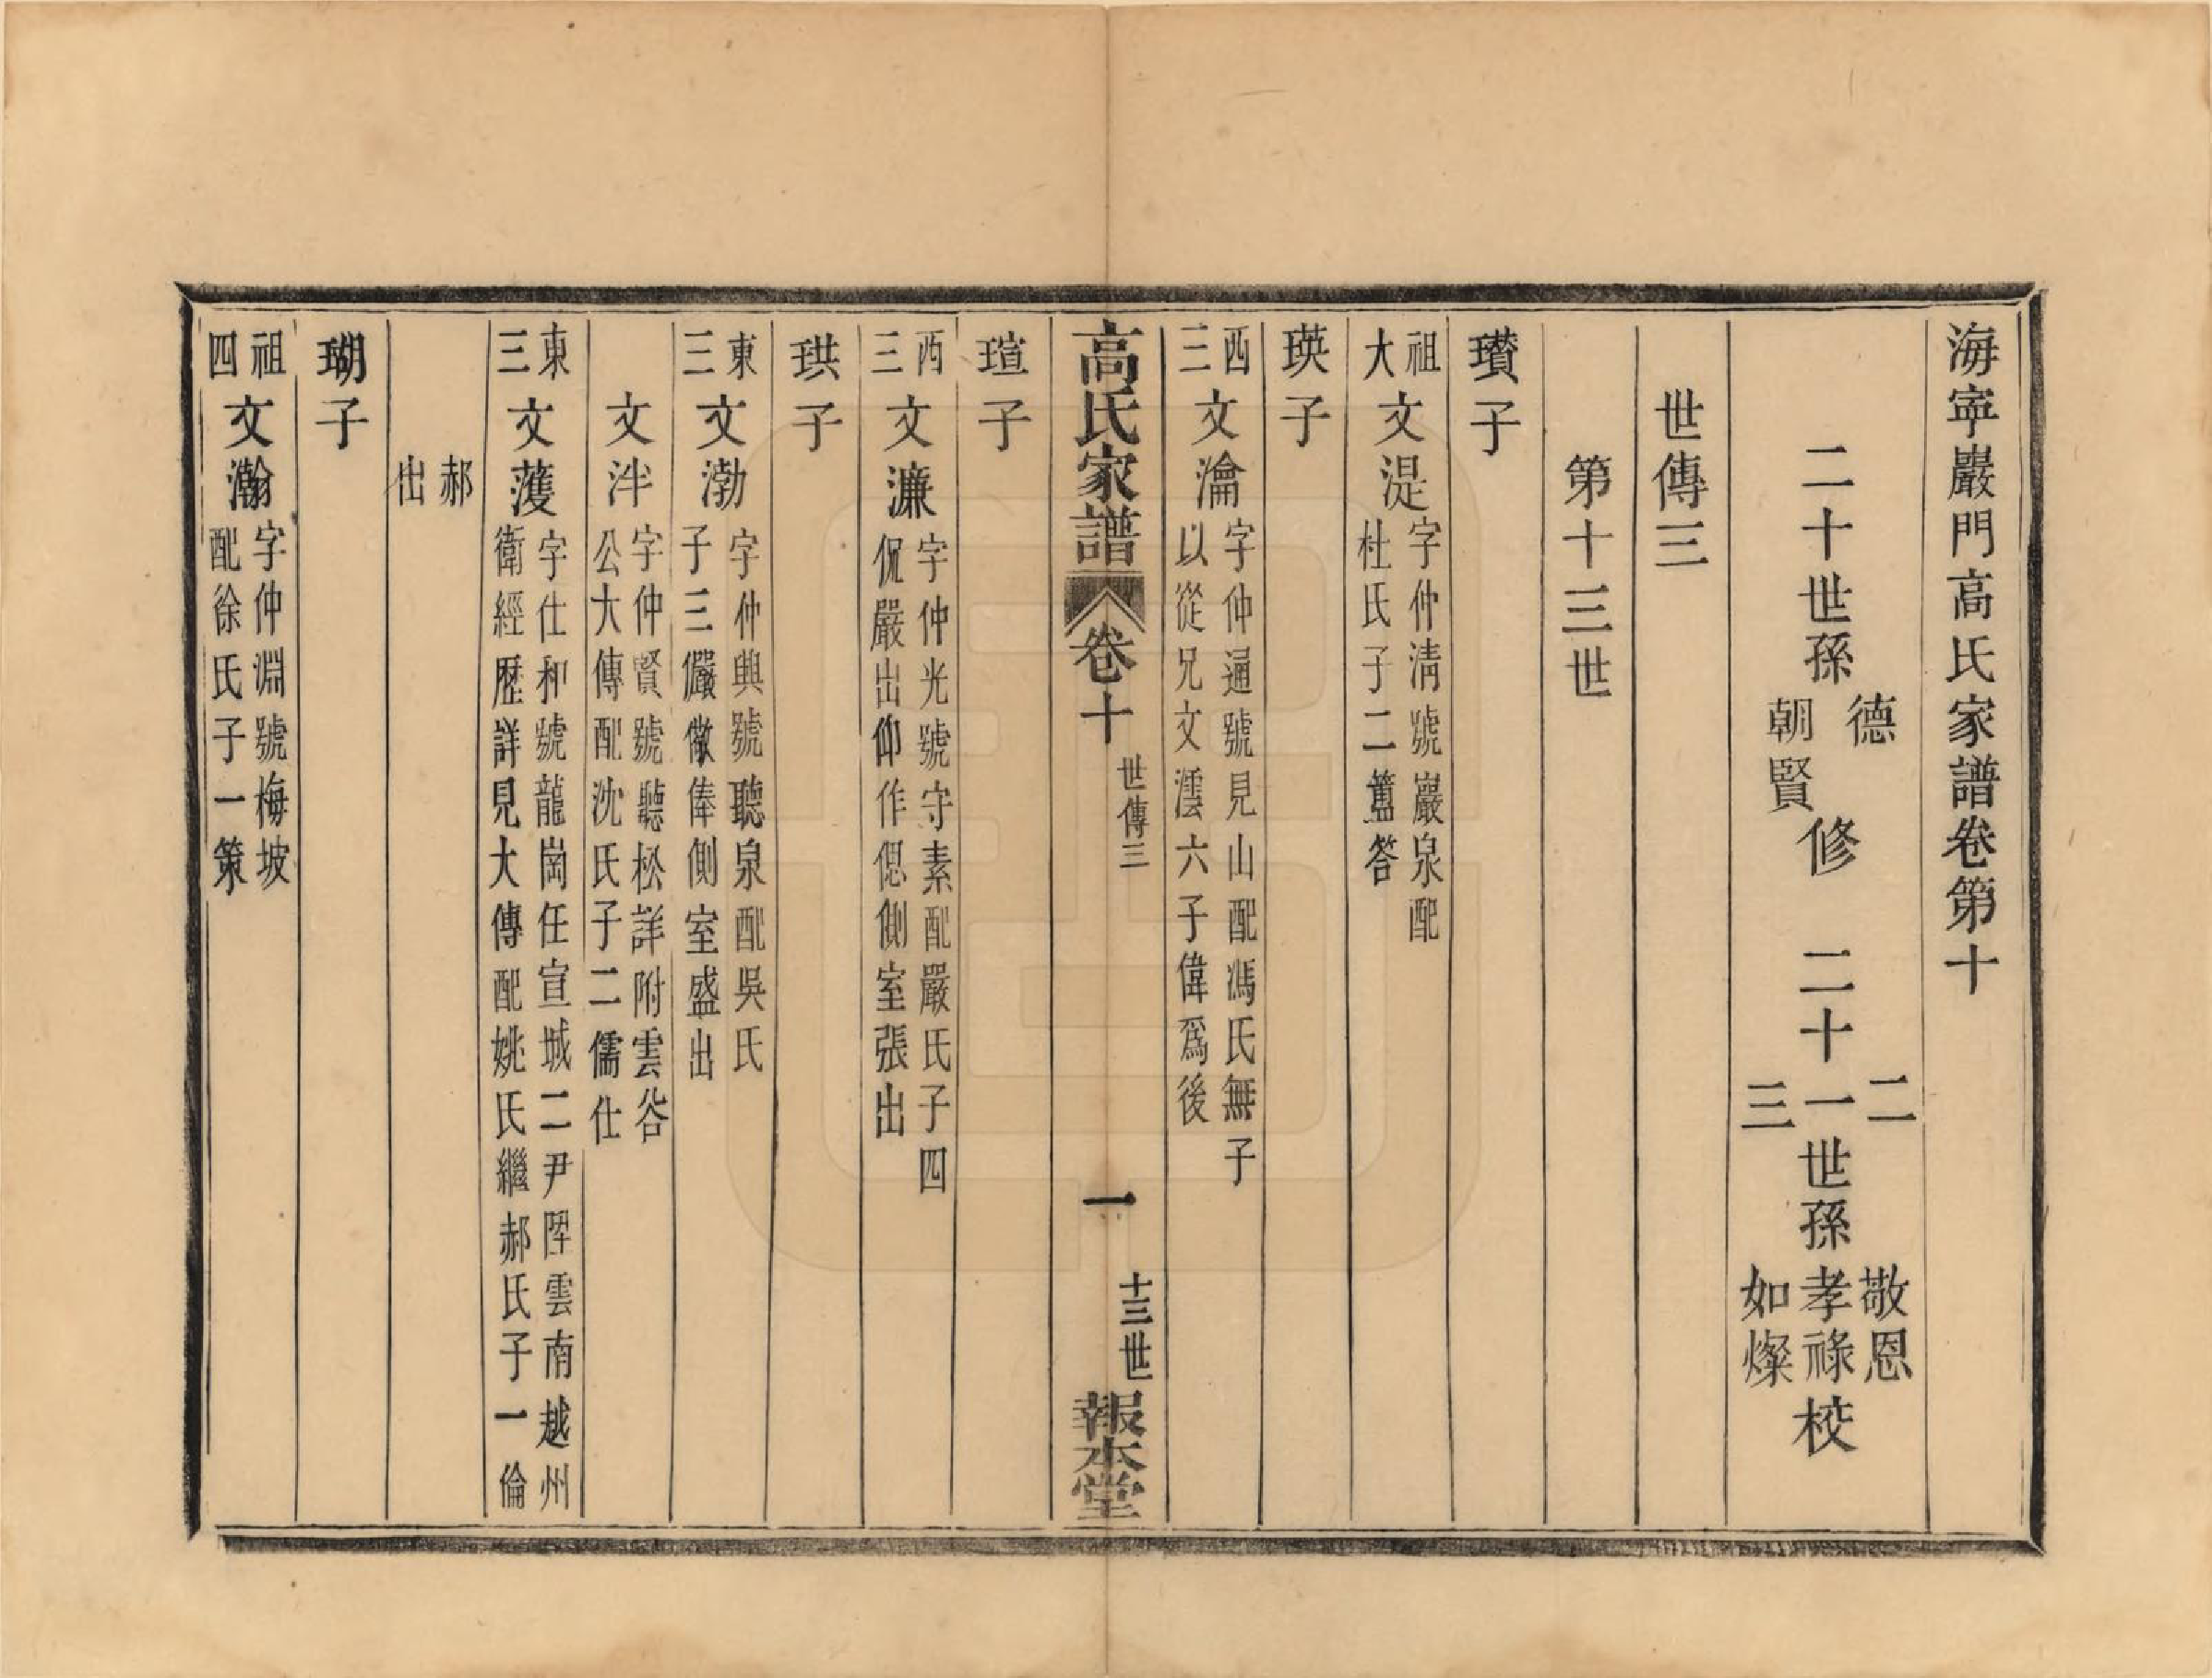 海寧巖門高氏家譜卷第十
二十世孫德朝賢修　二十一世孫二三敬恩孝祿如燦校
世傳三
第十三世
瓚子
祖大文湜字仲淸號巖泉配
杜氏子二簠答
瑛子
西三文瀹字仲通號見山配馮氏無子
以從兄文澐六子偉爲後
高氏家譜　卷十　世傳三　一　十三世　報本堂
瑄子
西三文濂字仲光號守素配嚴氏子四
侃嚴出仰作偲側室張出
珙子
東三文渤字仲興號聽泉配吳氏
子三儼儆俸側室盛出
文泮字仲賢號聽松詳附雲谷
公大傳配沈氏子二儒仕
東三文濩字仕和號龍崗任宣城二尹陞雲南越州
衛經歷詳見大傳配姚氏繼郝氏子一倫
郝出
瑚子
祖四文瀚字仲淵號梅坡
配徐氏子一策